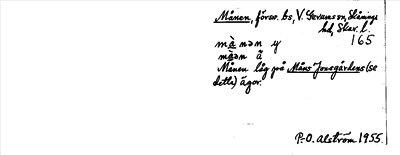 Månen, försv. bs, V. Gerumsson, Skånings
hd, Skar. l.
165
mànən y
mån ä
Månen låg på Måns Jonsgårdens (se
detta) ägor.
P.-O. Alström 1955.